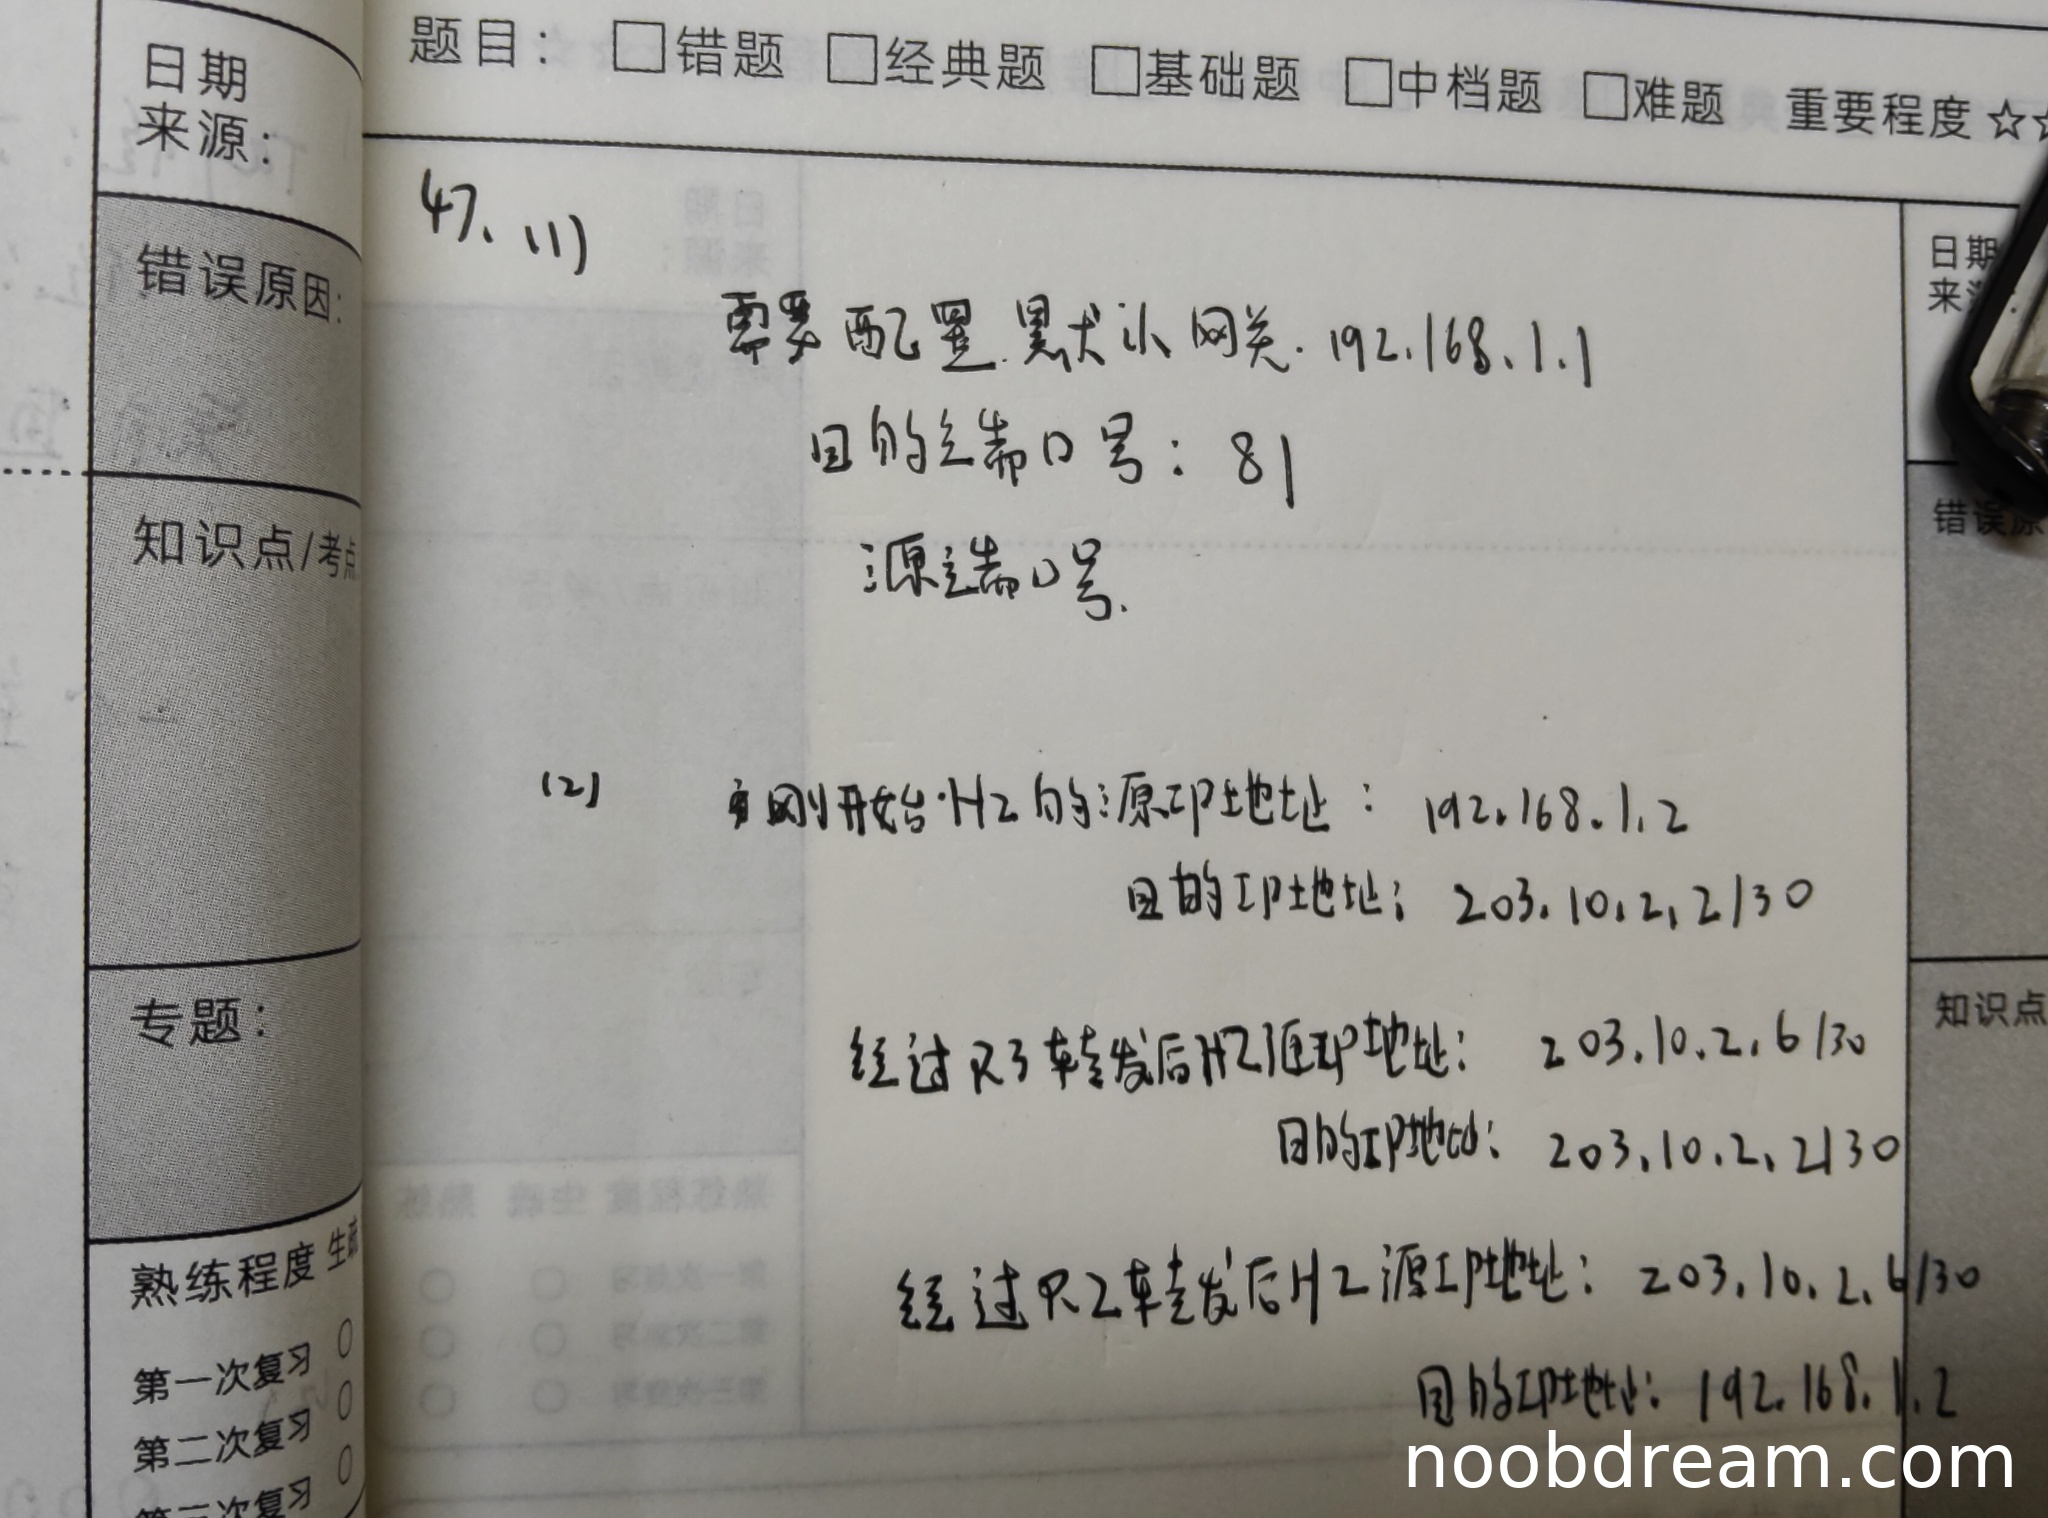 日期
来源:
错误原因:
知识点/考点
专题:
熟练程度 生疏
第一次复习
第二次复习
第三次复习
题目: 错题 经典题 基础题 中档题 难题 重要程度 ☆☆
47. (1)
需要配置默认网关. 192.168.1.1
目的端口号: 81
源端口号.
(2) 刚开始·H2的源IP地址: 192.168.1.2
目的IP地址: 203.10.2.2/30
经过R3转发后H2源IP地址: 203.10.2.6/30
目的IP地址: 203.10.2.2/30
经过R2转发后H2源IP地址: 203.10.2.6/30
目的IP地址: 192.168.1.2
日期
来源:
错误原
知识点
noobdream.com